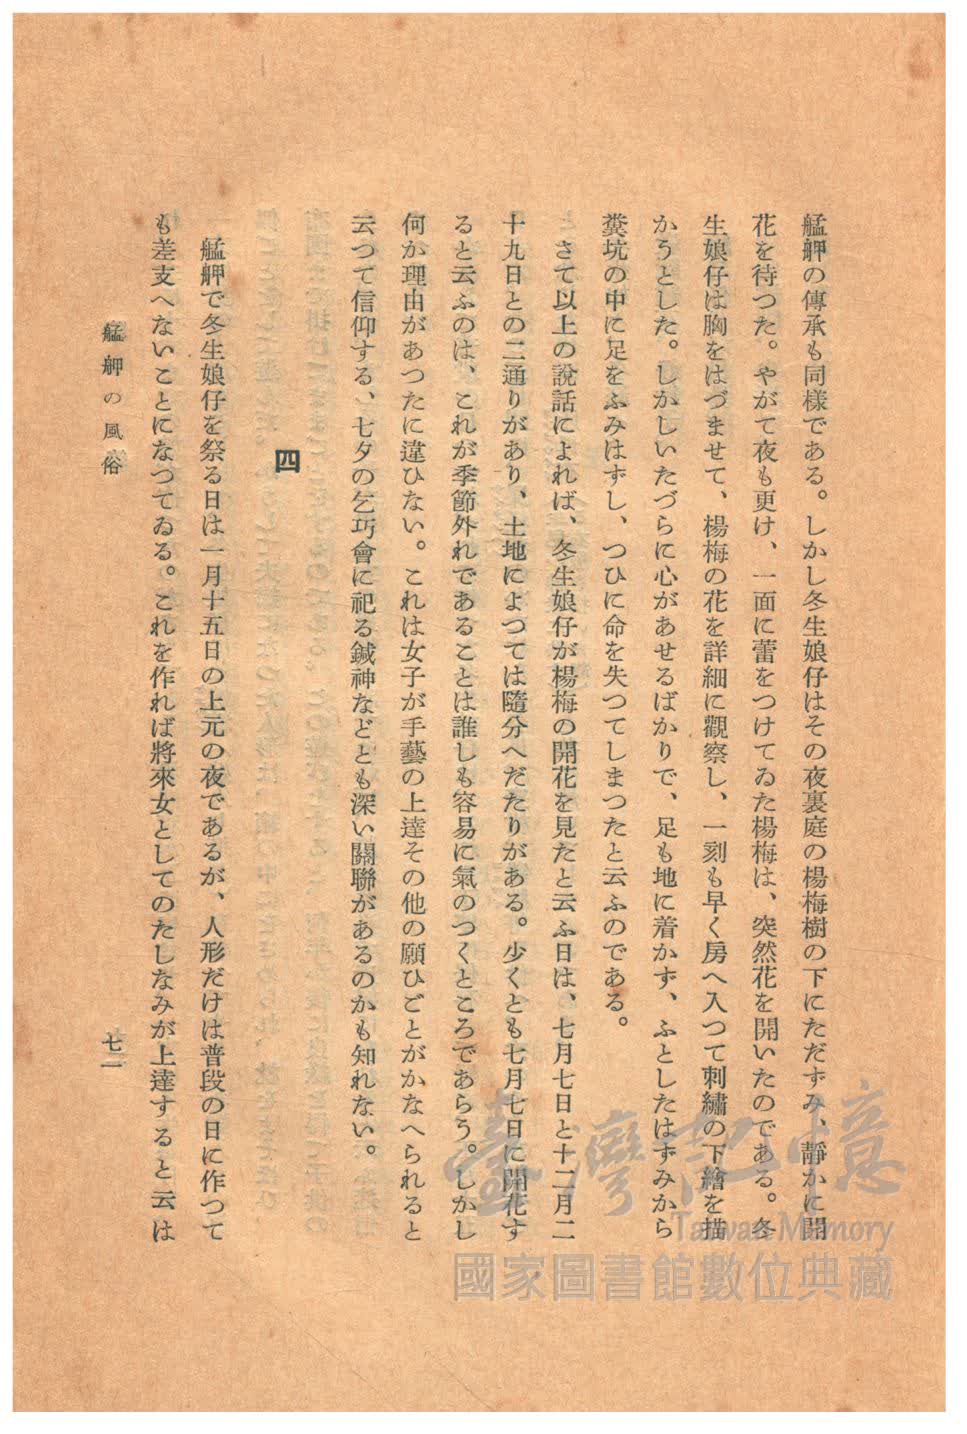 艋舺の傳承も同樣である。しかし冬生娘仔はその夜裏庭の楊梅樹の下にただずみ、靜かに開
花を待つた。やがて夜も更け、一面に蕾をつけてゐた楊梅は、突然花を開いたのである。冬
生娘仔は胸をはづませて、楊梅の花を詳細に觀察し、一刻も早く房へ入つて刺繡の下繪を描
かうとした。しかしいたづらに心があせるばかりで、足も地に着かず、ふとしたはずみから
糞坑の中に足をふみはずし、つひに命を失つてしまつたと云ふのである。
さて以上の說話によれば、冬生娘仔が楊梅の開花を見たと云ふ日は、七月七日と十二月二
十九日との二通りがあり、土地によつては隨分へだたりがある。少くとも七月七日に開花す
ると云ふのは、これが季節外れであることは誰しも容易に氣のつくところであらう。しかし
何か理由があつたに違ひない。これは女子が手藝の上達その他の願ひごとがかなへられると
云つて信仰する、七夕の乞巧會に祀る鍼神などとも深い關聯があるのかも知れない。
四
艋舺で冬生娘仔を祭る日は一月十五日の上元の夜であるが、人形だけは普段の日に作つて
も差支へないことになつてゐる。これを作れば將來女としてのたしなみが上達すると云は
艋舺の風俗
七一
臺灣記憶
Taiwan Memory
國家圖書館數位典藏